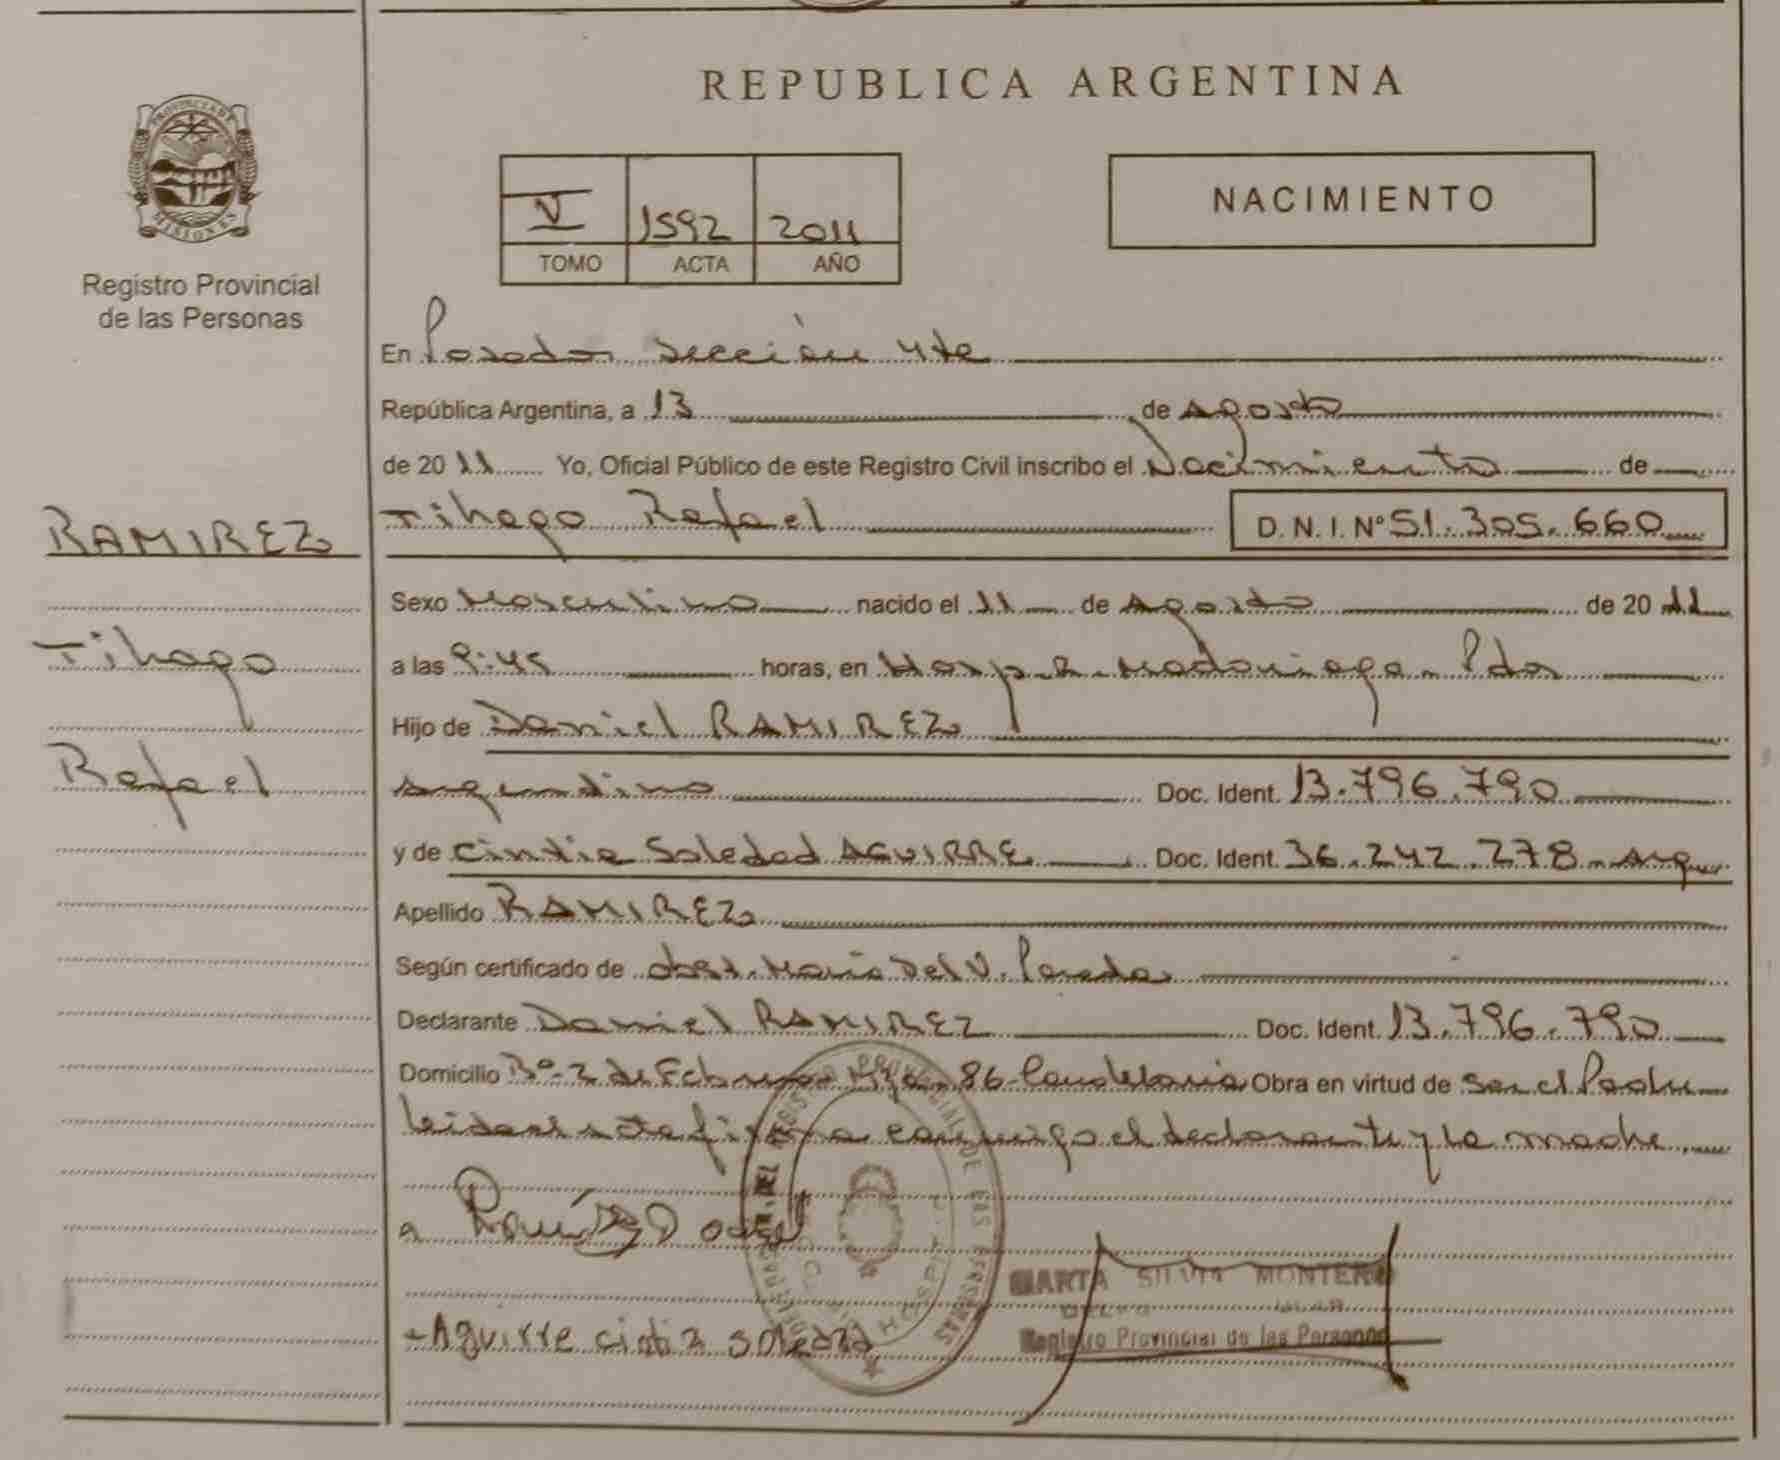 REPUBLICA ARGENTINA
PROVINCIA DE
MISIONES
Registro Provincial
de las Personas
V 1592 2011
TOMO ACTA AÑO
NACIMIENTO
En Posadas sección 4te
República Argentina, a 13 de Agosto
de 2011 Yo, Oficial Público de este Registro Civil inscribo el Nacimiento de
RAMIREZ
Tihago Rafael D. N. I. Nº 51.305.660
Sexo Masculino nacido el 11 de Agosto de 2011
Tihago
a las 9:45 horas, en Hosp. R. Madariaga - Pdas
Hijo de Daniel RAMIREZ
Rafael
Argentino Doc. Ident. 13.796.790
y de Cintia Soledad AGUIRRE Doc. Ident. 36.242.278 - Arg
Apellido RAMIREZ
Según certificado de obst. Maria Del V. Pereda
Declarante Daniel RAMIREZ Doc. Ident. 13.796.790
Domicilio Bº 2 de Febrero 86 - Candelaria Obra en virtud de ser el Padre
leida el acta firma conmigo el declarante y la madre
Ramírez
- Aguirre cintia soledad
MARTA SILVIA MONTERO
Registro Provincial de las Personas